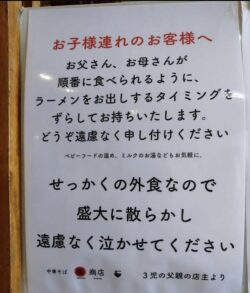 お子様連れのお客様へ
お父さん、お母さんが
順番に食べられるように、
ラーメンをお出しするタイミングを
ずらしてお持ちいたします。
どうぞ遠慮なく申し付けください
ベビーフードの温め、ミルクのお湯などもお気軽に。
せっかくの外食なので
盛大に散らかし
遠慮なく泣かせてください
中華そば 商店 3児の父親の店主より